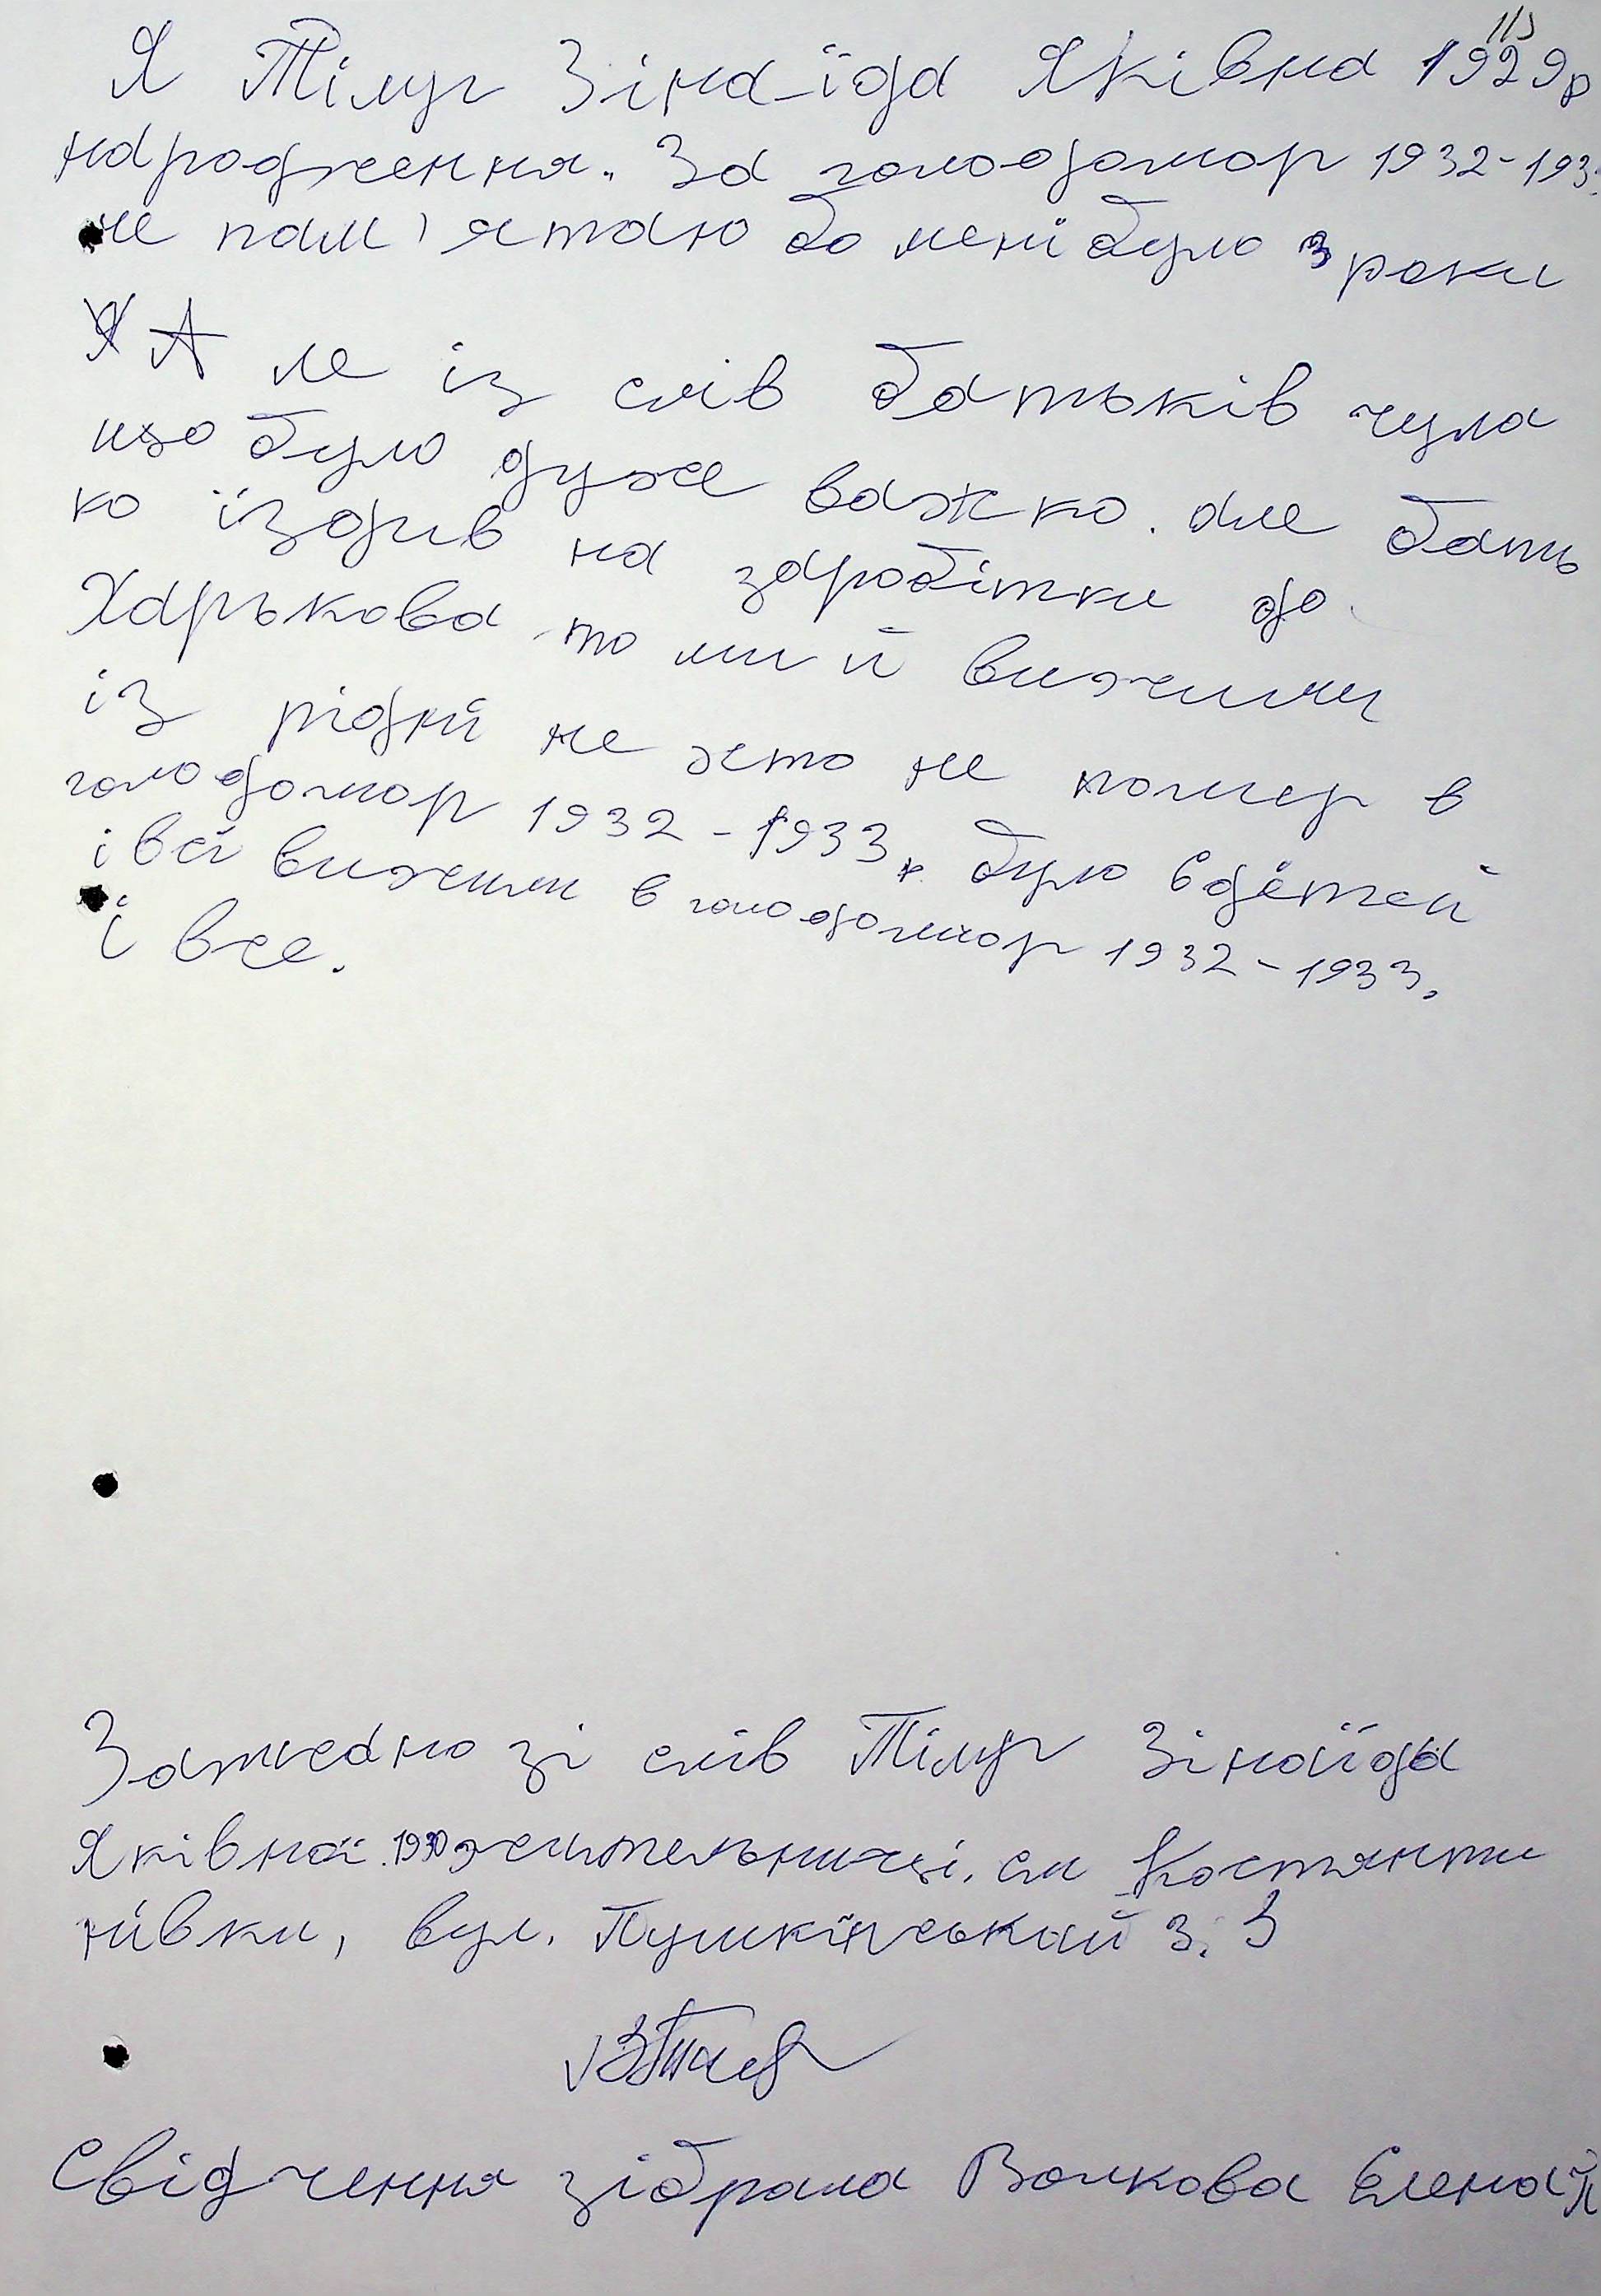 113
Я Тілуг Зіна-їда Яківна 1929р
народження. За голодомор 1932-193
не пам'ятаю бо мені було 3 роки
А ле із слів батьків чула
що було дуже важко. але бать
ко їздив на заробітки до
Харькова то ми й вижили
із рідні не хто не помер в
голодомор 1932-1933. було 6 дітей
і всі вижили в голодомор 1932-1933.
і все.
зі слів Тілуг Зінаїда
Яківной. 1930 жительниці. см Костянти
нівки, вул. Пушкінський 3. 3
Свідчення зібрала Волкова Елена П